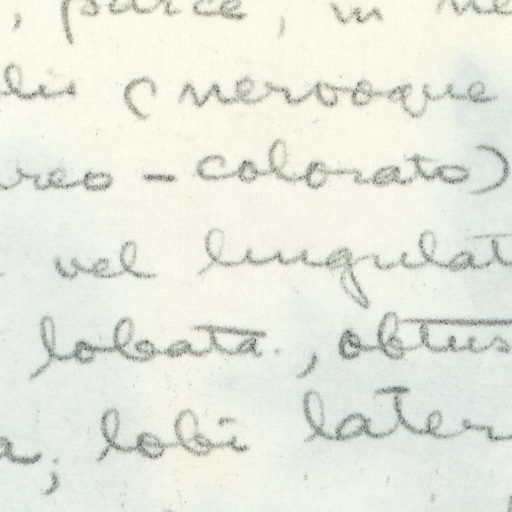 , parce, in
lis (nervoque
reo - colorato)
vel lingulat
lobata, obtus
a; lobi later